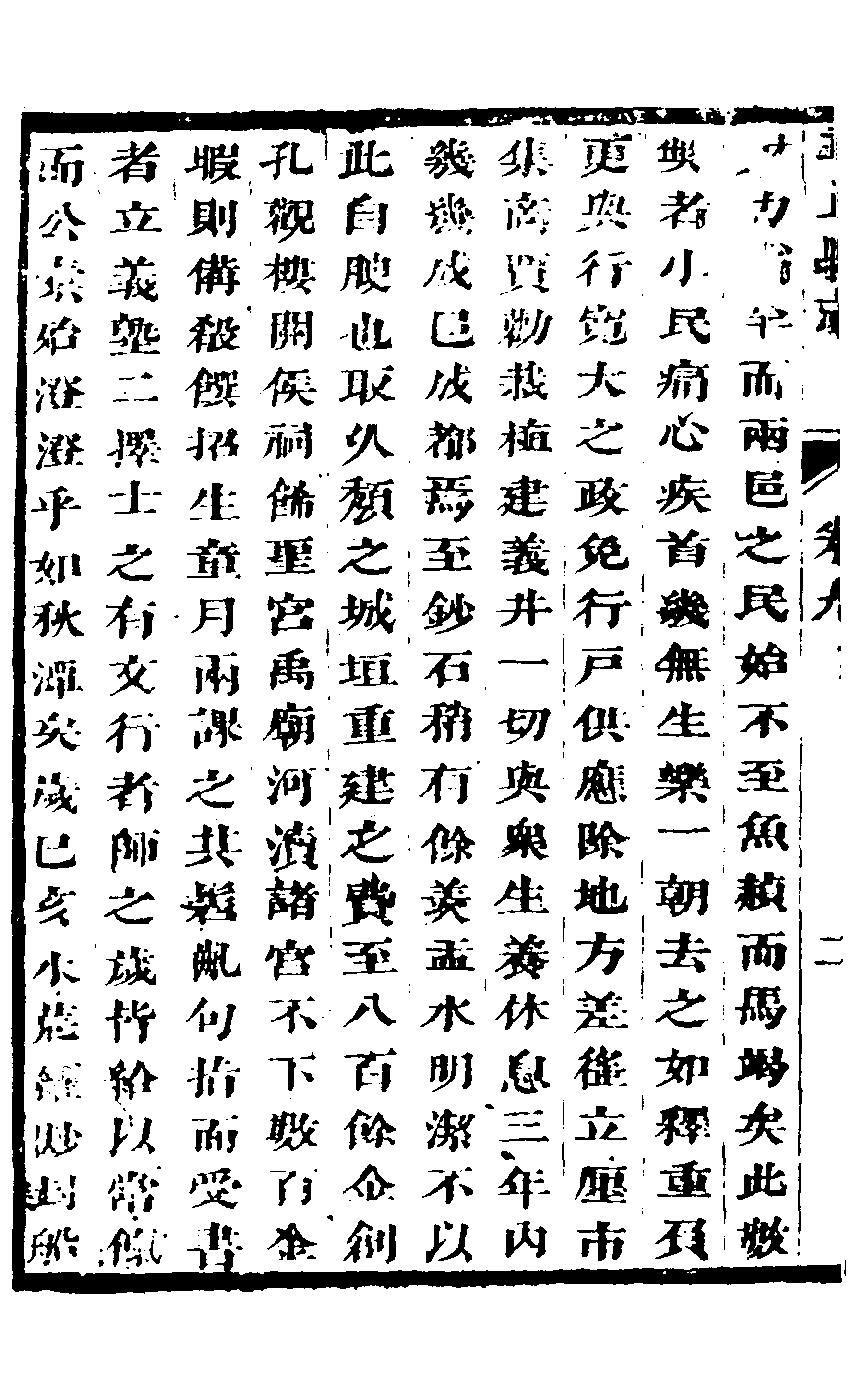 卷九 二
力 而兩邑之民始不至魚頳而馬竭矣此數
與者小民痛心疾首幾無生樂一朝去之如釋重負
更與行寬大之政免行戸供應除地方差徭立壓市
集商賈勸栽植建義井一切與衆生養休息三年内
幾幾成邑成都焉至鈔石稍有餘羡盂水明潔不以
此自腴也取久頽之城垣重建之費至八百餘金創
孔觀樓開侯祠餙聖宫禹廟河瀆諸宫不下數百金
暇則備殺饌招生童月兩課之共髫齓句指而受書
者立義塾二擇士之有文行者師之歲皆給以常餼
而公衷始澄澄乎如秋潭矣歲己亥水 經 封船